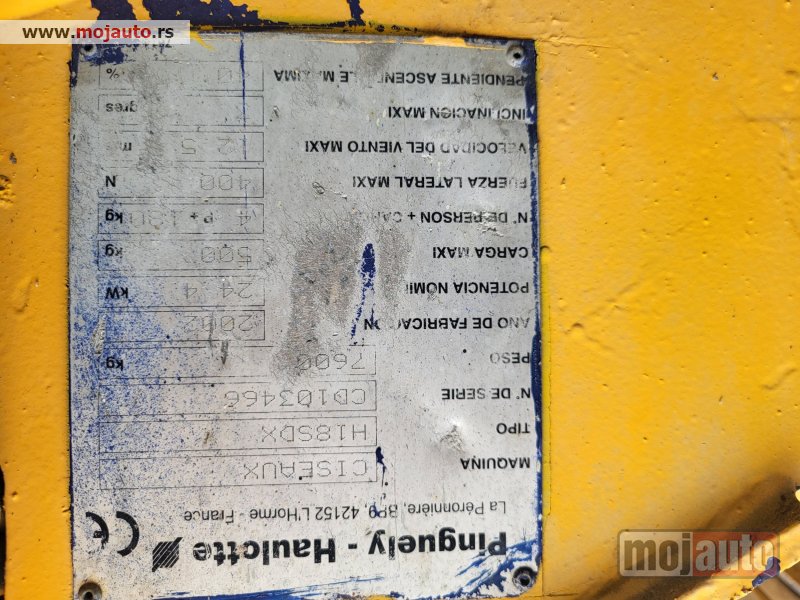 www.mojauto.rs
Pinguely - Haulotte CE
La Péronnière, BP9, 42152 L'Horme - France
MAQUINA CISEAUX
TIPO H18SDX
N° DE SERIE CD103466
PESO 7600 kg
ANO DE FABRICACION 2002
POTENCIA 24 4 kW
CARGA MAXI 500 kg
N° DE PERSON + 4 P + kg
FUERZA LATERAL MAXI 400 N
VELOCIDAD DEL VIENTO MAXI
INCLINACION MAXI gres
PENDIENTE %
mojauto